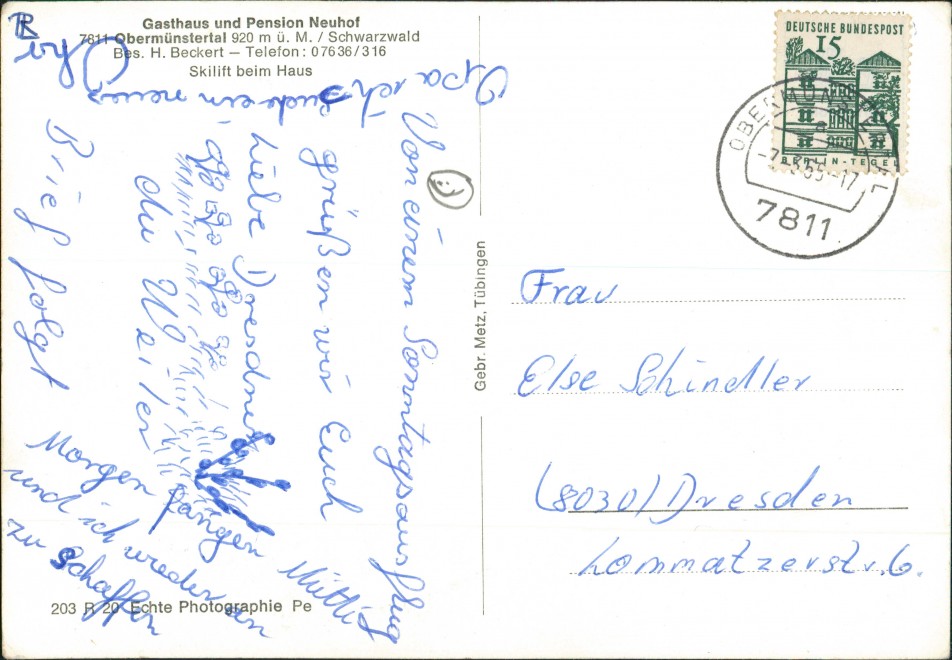 Gasthaus und Pension Neuhof
7811 Obermünstertal 920 m ü. M. / Schwarzwald
Bes. H. Beckert — Telefon: 07636/316
Skilift beim Haus
Von einem Sonntagsausflug
grüßen wir Euch
Liebe Dresdner
die Weiler
Brief folgt
Morgen fangen Mutti
und ich wieder an
zu schaffen
Opa ich
ein neues
203 R 20 Echte Photographie Pe
Gebr. Metz, Tübingen
DEUTSCHE BUNDESPOST
15
BERLIN-TEGEL
7811
Frau
Else Schindler
(8030) Dresden
Lommatzerstr. 6.